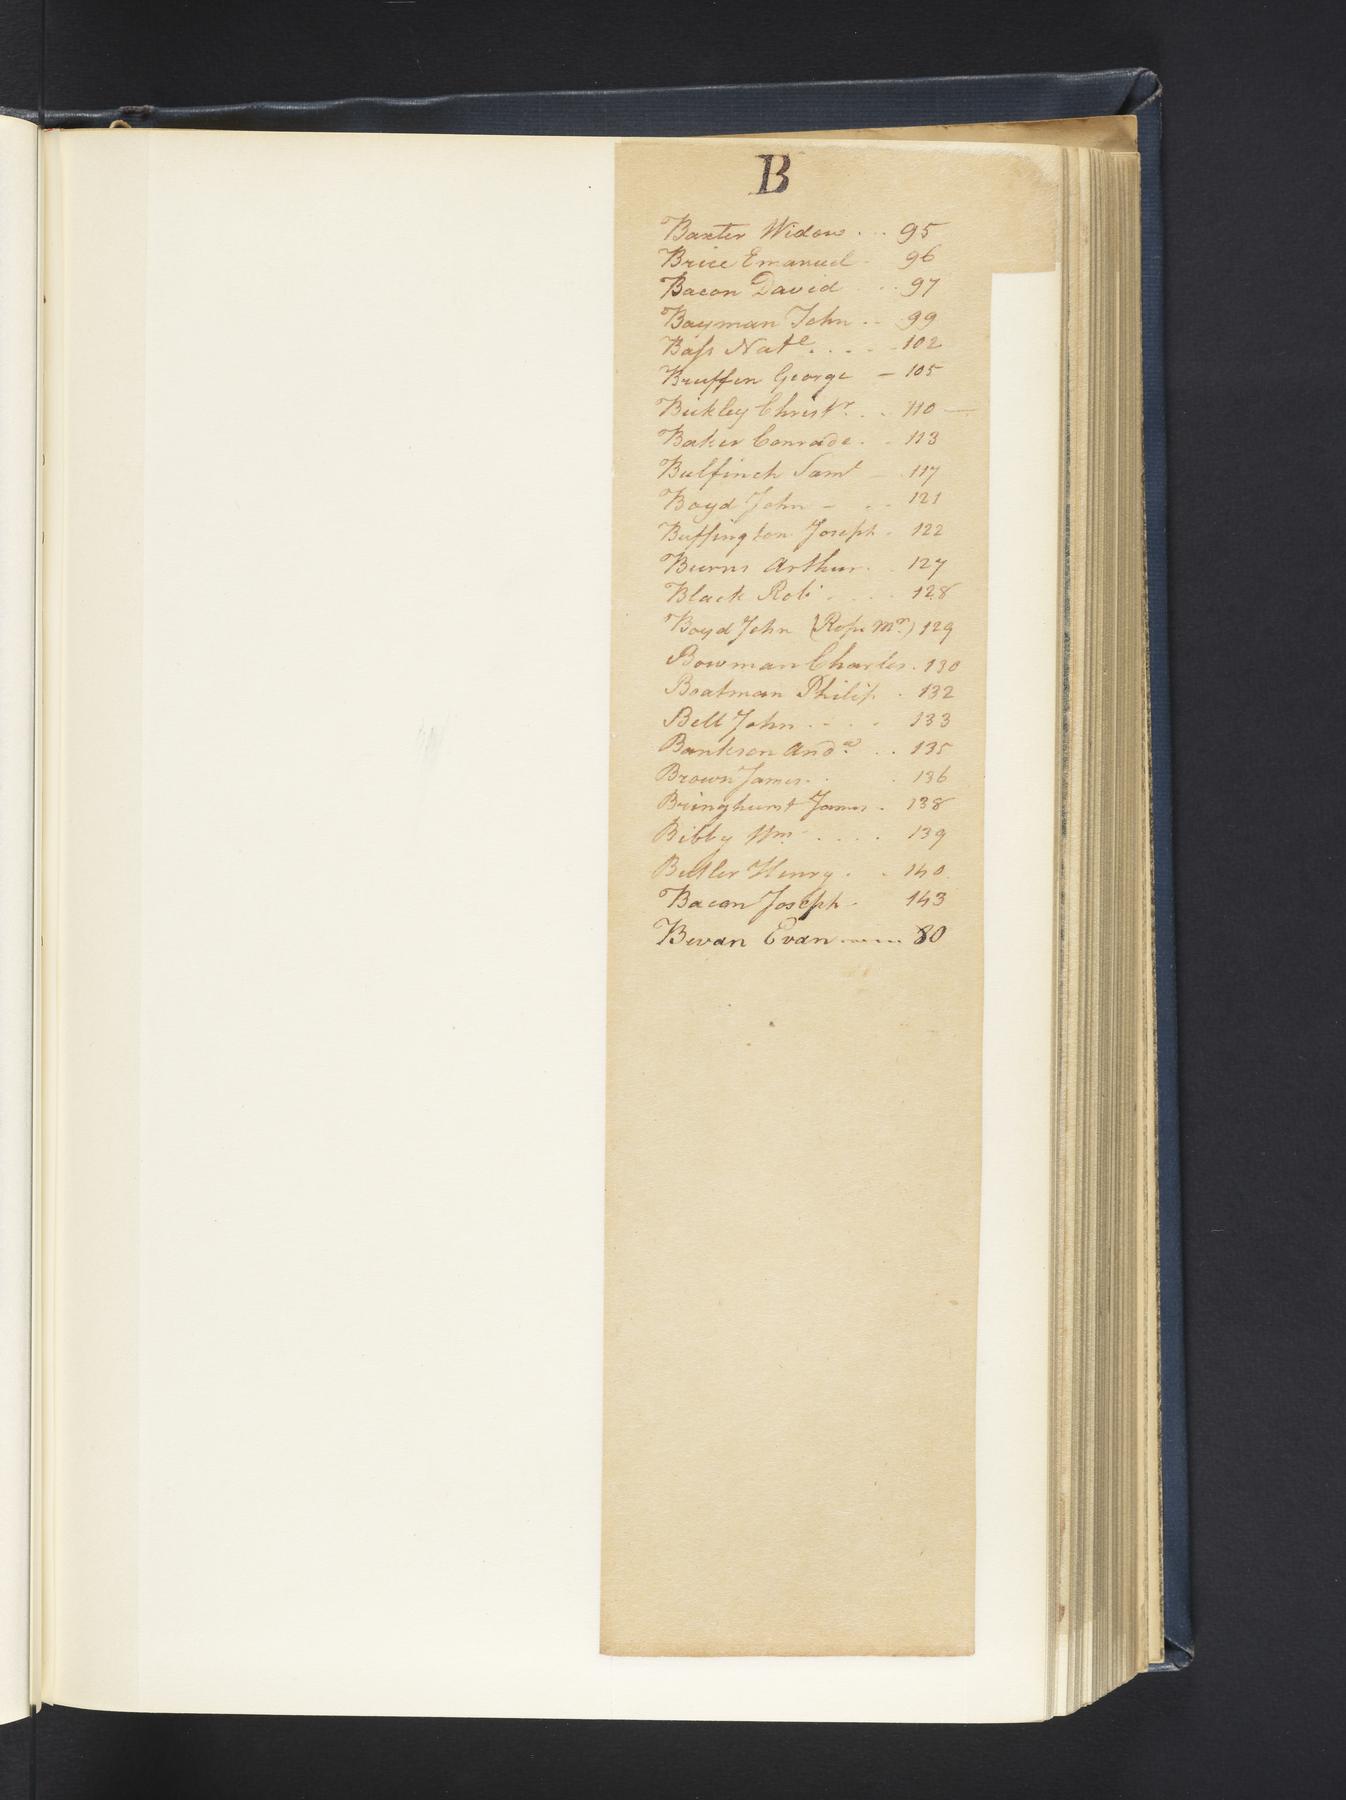 B
Baxter Widow . . . 95
Brice Emanuel - 96
Bacon David . . . 97
Bayman John . . 99
Baſs Natl. . . . . 102
Bruffen George — 105
Bickley Christr. . . 110 —
Baker Conrade . . 113
Bulfinch Saml — . 117
Boyd John - . . 121
Buffington Joseph . 122
Burns Arthur . . 127
Black Robt . . . . 128
Boyd John (Rope Mr.) 129
Bowman Charles . 130
Boatman Philip . 132
Bell John . . . . 133
Bankson Andw. . . 135
Brown James . . . 136
Bringhurst James . 138
Bibby Wm. . . . . 139
Butler Henry . . 140
Bacon Joseph . 143
Bevan Evan ....... 80